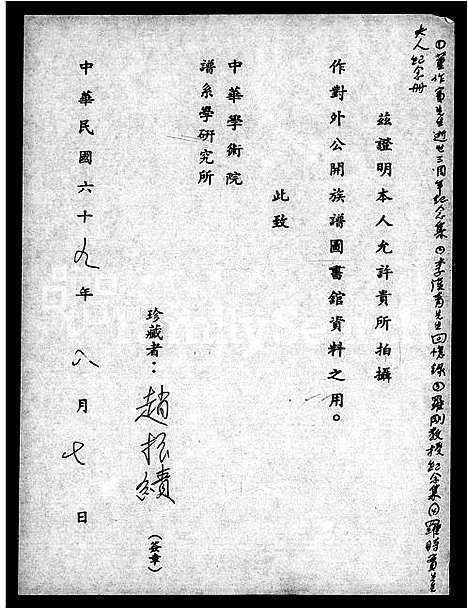 ①董作賓先生逝世三周年紀念集②李漢青先生回憶錄③羅剛教授紀念集④羅時實
夫人紀念冊
茲證明本人允許貴所拍攝
作對外公開族譜圖書館資料之用。
此致
中華學術院
譜系學研究所
珍藏者：趙振績（簽章）
中華民國六十九年八月七日